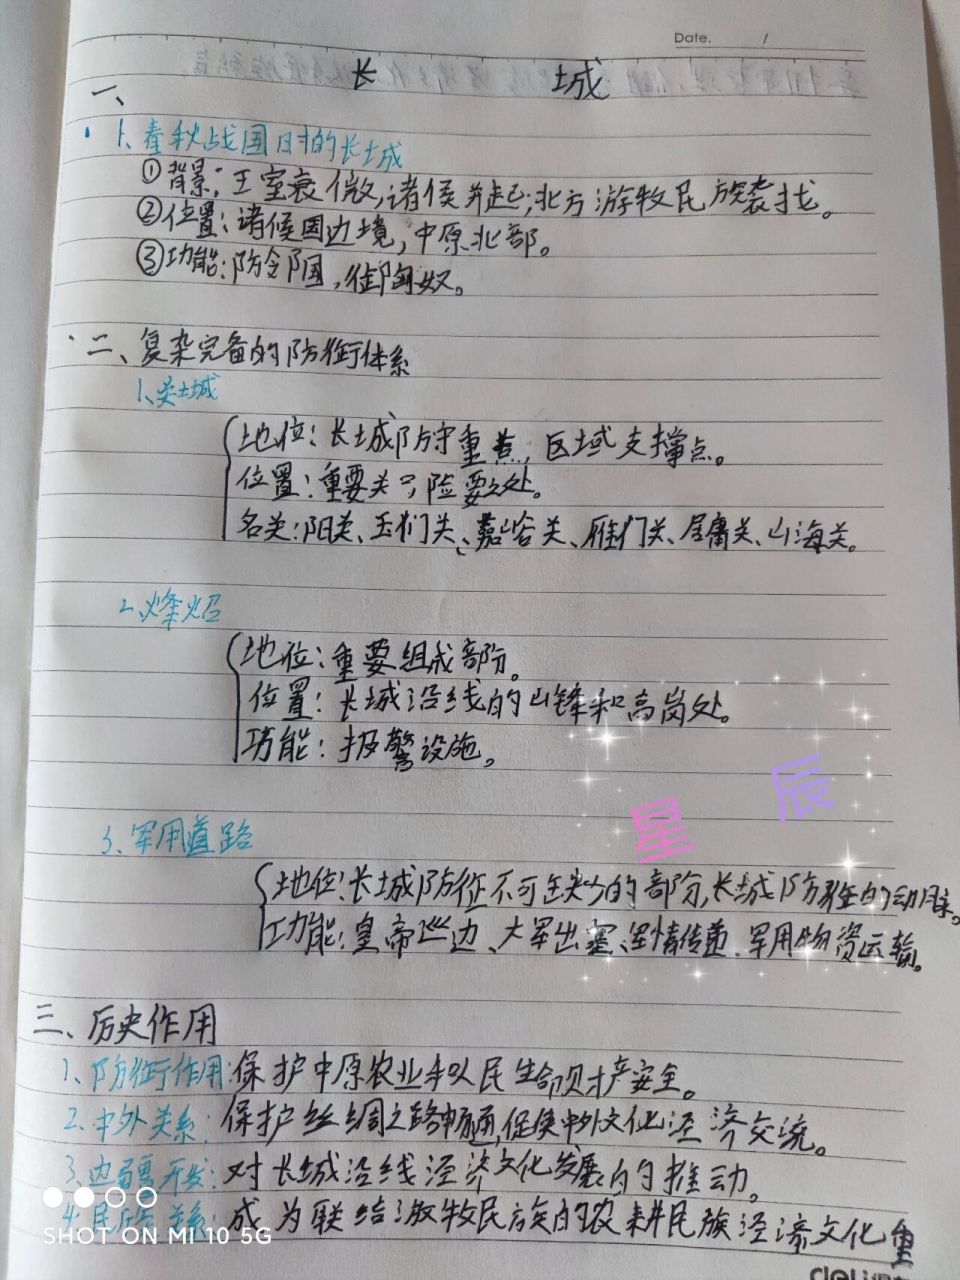 Date. /
长 城
一、
1、春秋战国时的长城
①背景：王室衰微，诸侯并起；北方游牧民族袭扰。
②位置：诸候国边境，中原北部。
③功能：防邻国，御匈奴。
二、复杂完备的防御体系
1、关城
地位：长城防守重点，区域支撑点。
位置：重要关口，险要之处。
名关：阳关、玉门关、嘉峪关、雁门关、居庸关、山海关。
2、烽火台
地位：重要组成部分。
位置：长城沿线的山锋和高岗处。
功能：报警设施。
星 辰
3、军用道路
地位：长城防御不可缺少的部分，长城防御的动脉。
功能：皇帝巡边、大军出塞、军情传递、军用物资运输。
三、历史作用
1、防御作用：保护中原农业和人民生命财产安全。
2、中外关系：保护丝绸之路畅通，促使中外文化经济交流。
3、边疆开发：对长城沿线经济文化发展的推动。
4、民族关系：成为联结游牧民族的农耕民族经济文化重
SHOT ON MI 10 5G
deli